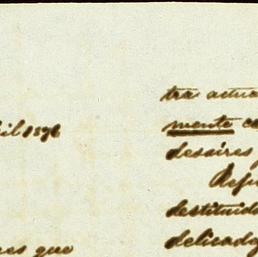 il 1896
es que
tra actua
mente co
desaires
Refu
destituido
delicado